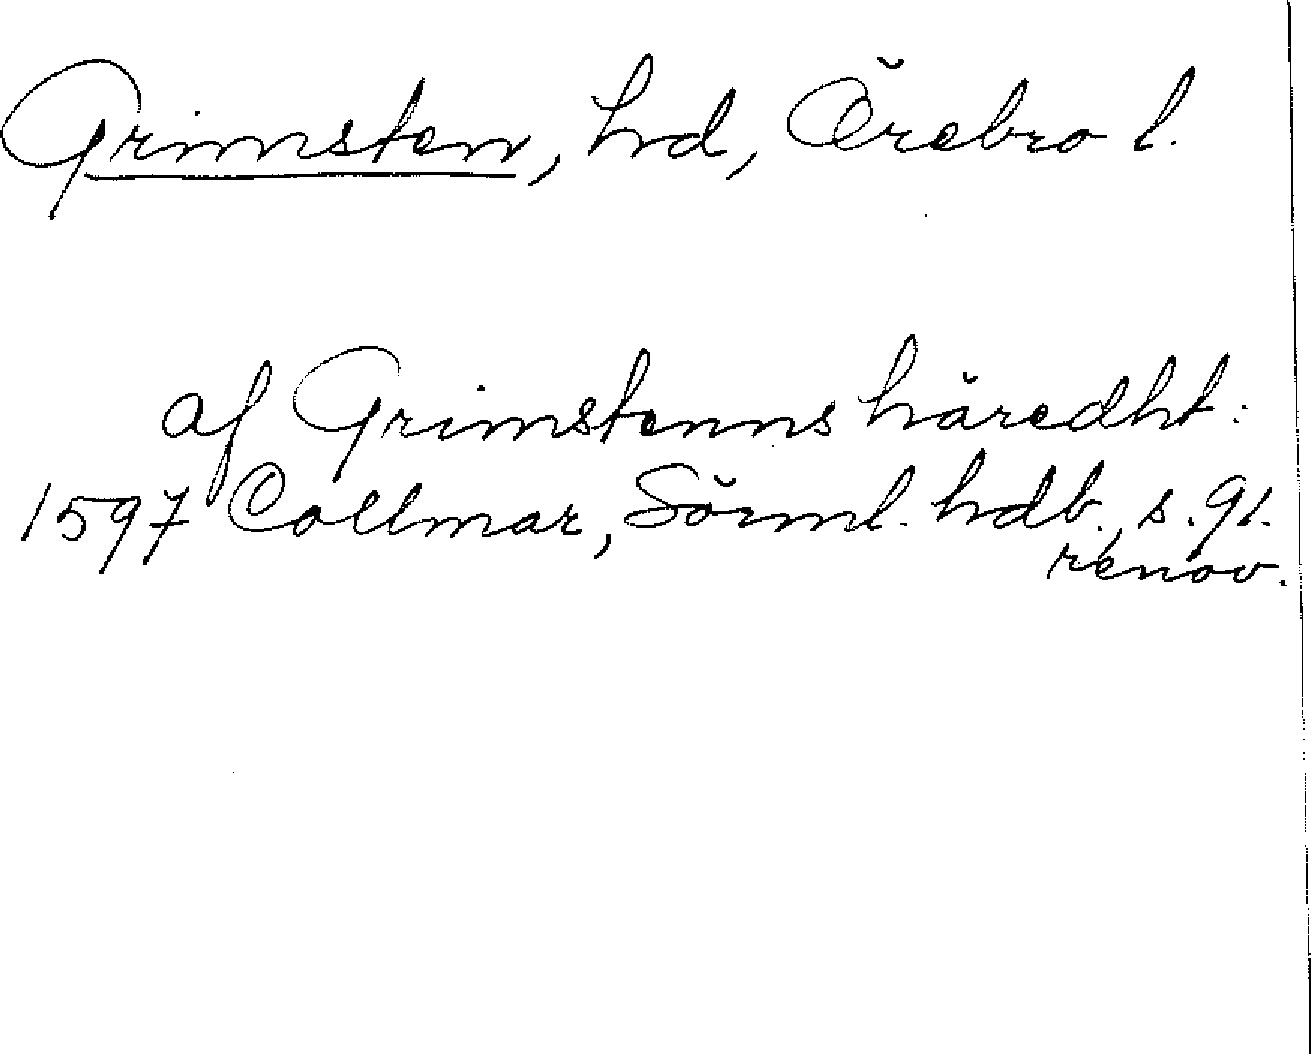 Grimsten, hd, Örebro l.
af Grimstenns häredht:
1597 Collmar, Sörml. hdb., s. 91.
renov.